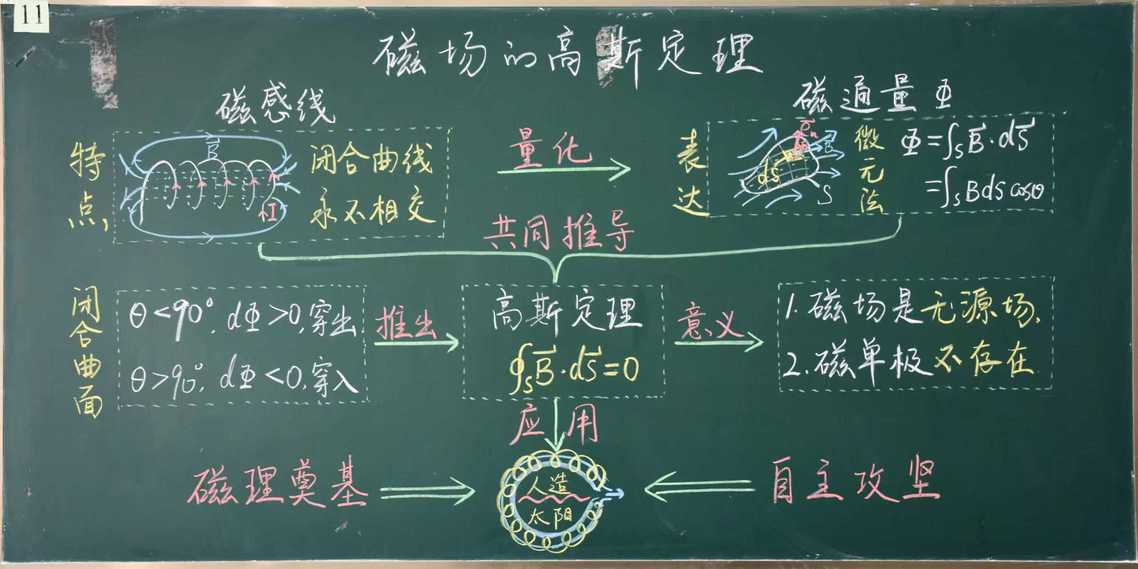 11
磁场的高斯定理
磁感线
磁通量 Φ
特点
B
I
闭合曲线
永不相交
量化
表达
dS
B
S
微元法
Φ=∫ₛB⃗·dS⃗
=∫ₛBdScosθ
共同推导
闭合曲面
θ<90°, dΦ>0,穿出
θ>90°, dΦ<0,穿入
推出
高斯定理
∮ₛB⃗·dS⃗=0
意义
1.磁场是无源场,
2.磁单极不存在
应用
磁理奠基
人造
太阳
自主攻坚